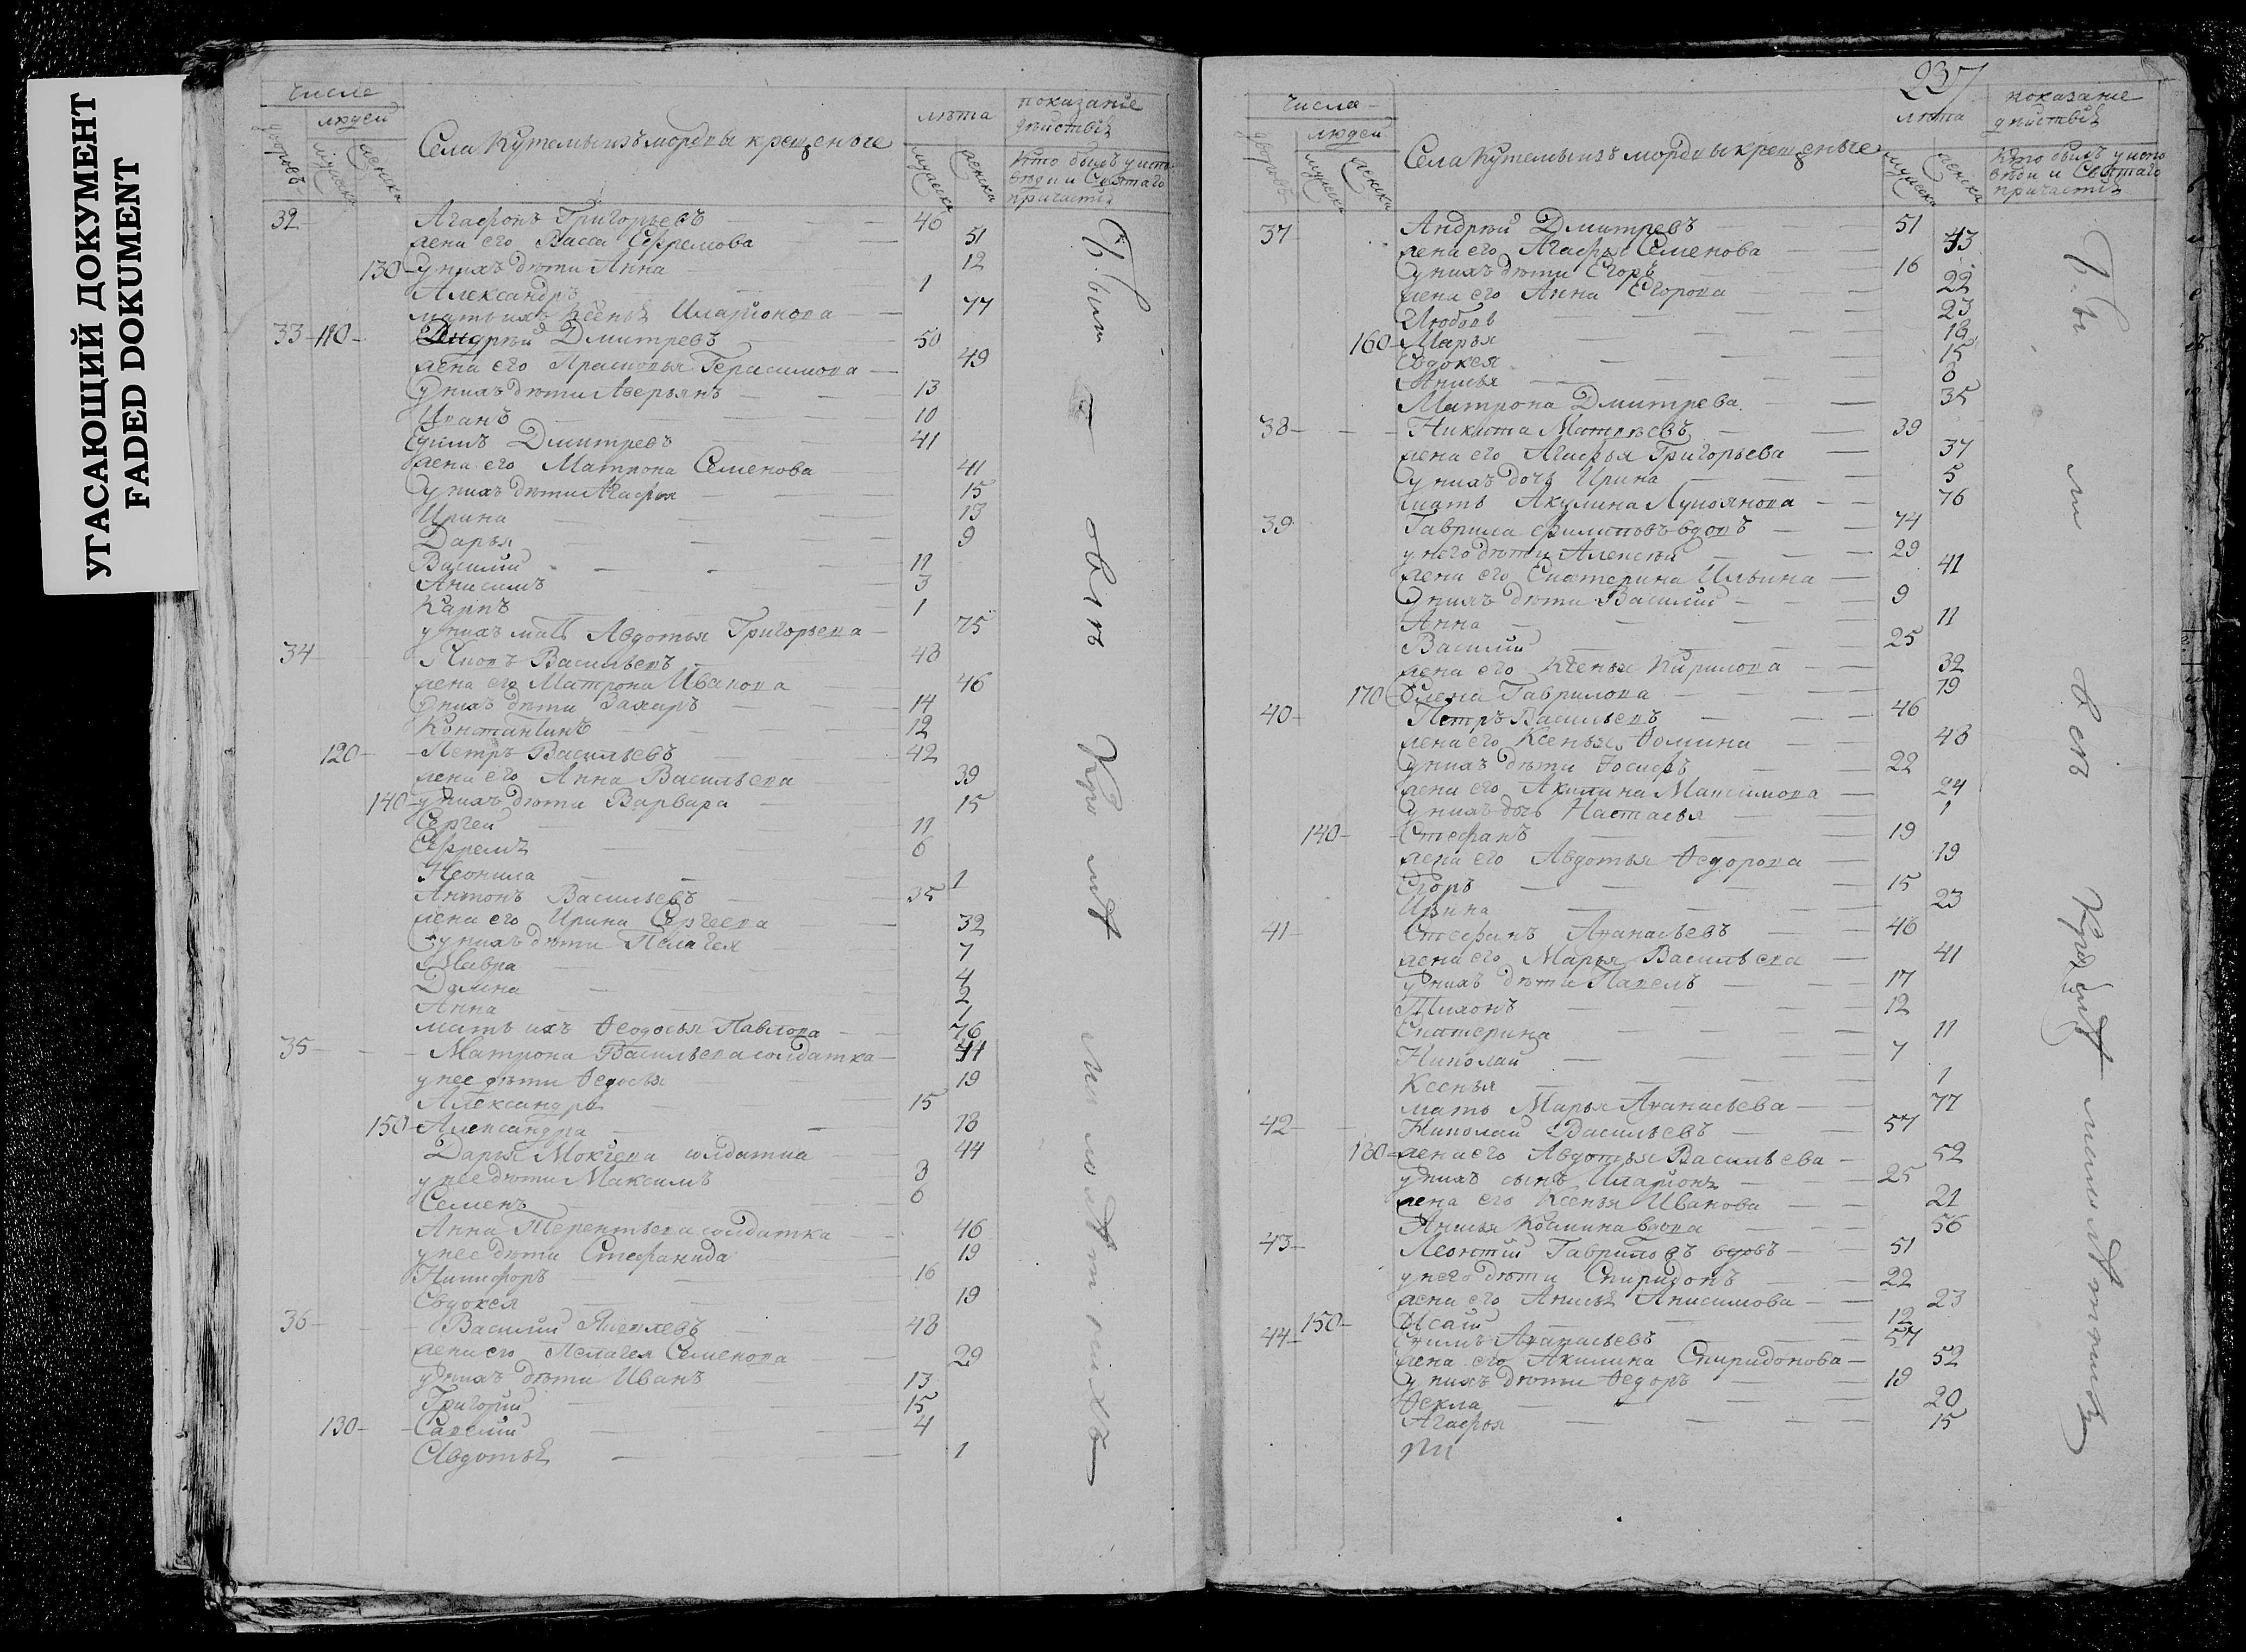 УГАСАЮЩИЙ ДОКУМЕНТ
FADED DOKUMENT
числе
людей
дворовъ
мужска
женска
Села Кутемы изъ мордвы крещеные
лѣта
мужеска
женска
показание
дѣйствія
Кто былъ у испо
вѣди и Святаго
причастія
32 Агафонъ Григорьевъ 46
жена его Васса Ефремова 51
130 У нихъ дѣти Анна 12
Александръ 1
мать ихъ Ксенья Иларионова 77
33 110 Андрѣй Дмитревъ 50
жена его Прасковья Герасимова 49
У нихъ дѣти Аверьянъ 13
Иванъ 10
Ефимъ Дмитревъ 41
жена его Матрона Семенова 41
У нихъ дѣти Агафья 15
Ирина 13
Дарья 9
Василий 11
Анисимъ 3
Карпъ 1
у нихъ мать Авдотья Григорьева 75
34 Яковъ Васильевъ 48
жена его Матрона Иванова 46
У нихъ дѣти Захаръ 14
Константинъ 12
120 Петръ Васильевъ 42
жена его Анна Васильева 39
140 у нихъ дѣти Варвара 15
Сергей 11
Ефремъ 6
Неонила 1
Антонъ Васильевъ 35
жена его Ирина Сергеева 32
У нихъ дѣти Пелагея 7
Мавра 4
Домна 2
Анна 1
мать ихъ Ѳеодосья Павлова 76
35 Матрона Васильева солдатка 41
у нее дѣти Ѳедосья 19
Александръ 15
150 Александра 18
Дарья Мокѣева солдатка 44
у нее дѣти Максимъ 8
Семенъ 6
Анна Терентьева солдатка 46
у нее дѣти Стефанида 19
Никифоръ 16
Евдокея 19
36 Василий Яковлевъ 48
жена его Пелагея Семенова 29
у нихъ дѣти Иванъ 13
Григорий 15
130 Савелий 4
Авдотья 1
237
числа
людей
дворовъ
мужска
женска
Села Кутемы изъ мордвы крещеные
лѣта
мужеска
женска
показание
дѣйствія
Кто былъ у испо
вѣди и Святаго
причастія
37 Андрѣй Дмитревъ 51
жена его Агафья Семенова 43
У нихъ дѣти Егоръ 16
жена его Анна Егорова 22
Любовь 23
160 Марья 18
Евдокея 15
Анисья 8
Матрона Дмитрева 35
38 Никита Матвѣевъ 39
жена его Агафья Григорьева 37
У нихъ дочь Ирина 5
мать Акулина Лукоянова 76
39 Гаврила Филиповъ вдовъ 74
у него дѣти Алексѣй 29
жена его Екатерина Ильина 41
У нихъ дѣти Василий 9
Анна 11
Василий 25
жена его Ксенья Кирилова 32
170 Елена Гаврилова 19
40 Петръ Васильевъ 46
жена его Ксенья Ѳомина 48
У нихъ дѣти Іосифъ 22
жена его Акилина Максимова 24
У нихъ дочь Настасья 1
140 Стефанъ 19
жена его Авдотья Ѳедорова 19
Егоръ 15
Ирина 23
41 Стефанъ Аѳанасьевъ 46
жена его Марья Васильева 41
у нихъ дѣти Павелъ 17
Тихонъ 12
Екатерина 11
Николай 7
Ксенья 1
мать Марья Аѳанасьева 77
42 Николай Васильевъ 57
180 жена его Авдотья Васильева 52
у нихъ сынъ Иларионъ 25
жена его Ксенья Иванова 21
Анисья Козмина вдова 56
43 Леонтий Гавриловъ вдовъ 51
у него дѣти Спиридонъ 22
жена его Анисья Анисимова 23
150 Исай 12
44 Ефимъ Аѳанасьевъ 57
жена его Акилина Спиридонова 52
У нихъ дѣти Ѳедоръ 19
Ѳекла 20
Агафья 15